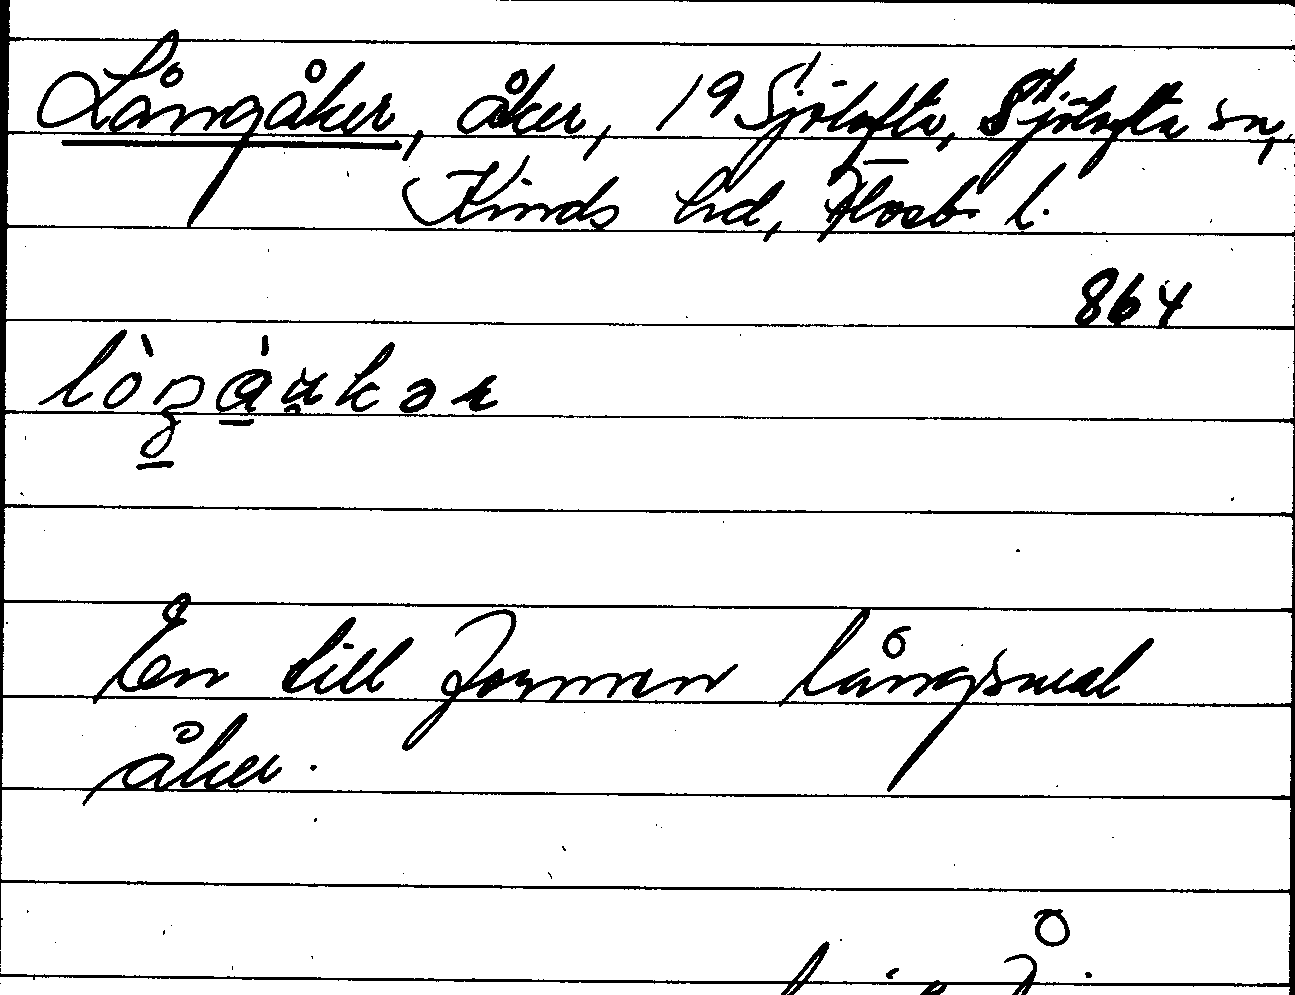 Långåker, åker, 19 Sjötofta, Sjötofta sn,
Kinds hd, Älvsb. l.
864
En till formen långsmal
åker.